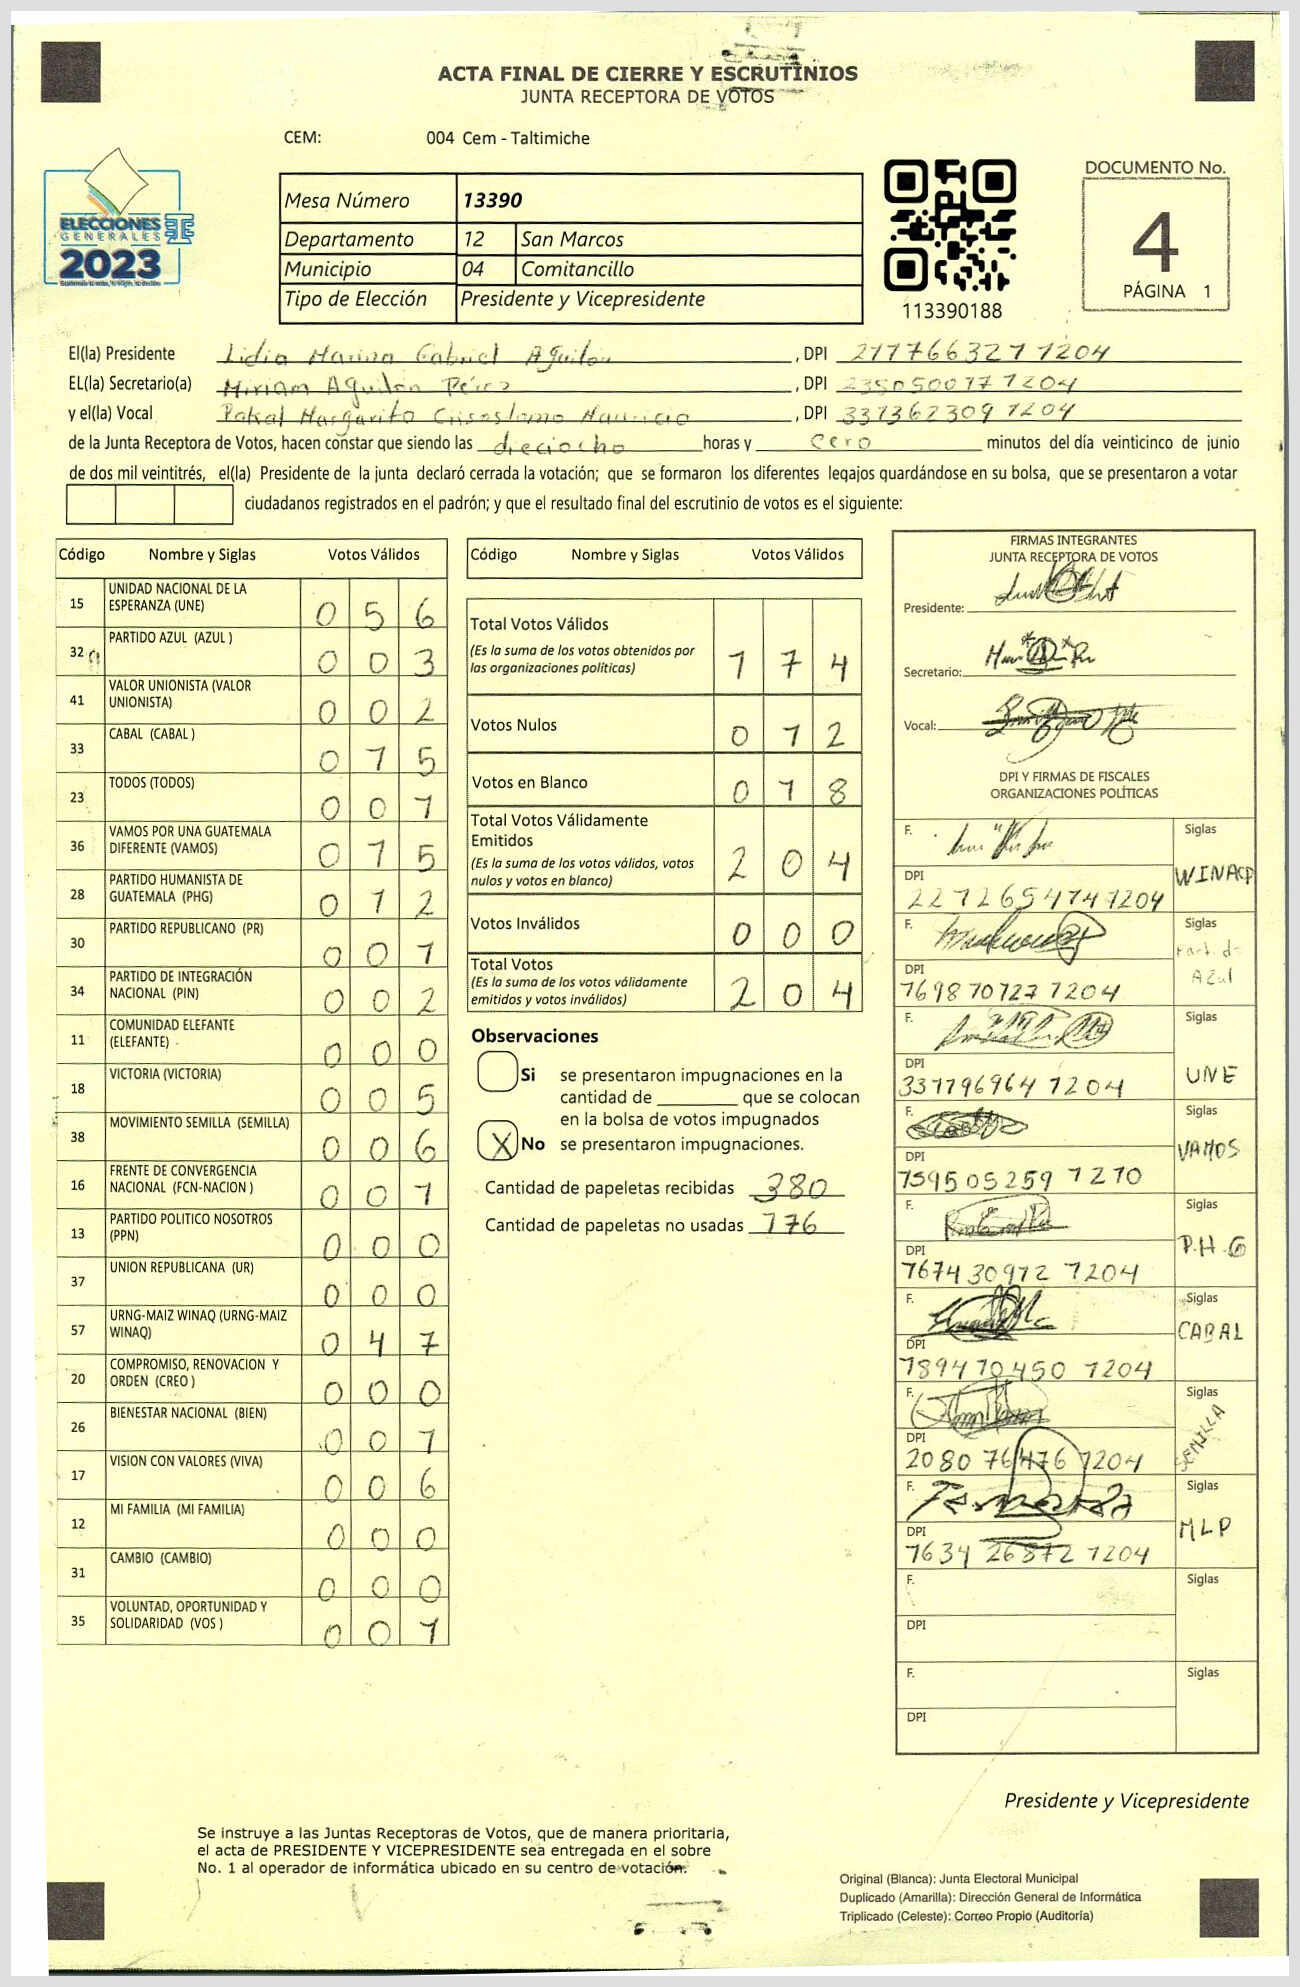 ACTA FINAL DE CIERRE Y ESCRUTINIOS
JUNTA RECEPTORA DE VOTOS
CEM: 004 Cem - Taltimiche
ELECCIONES
GENERALES
2023
Mesa Número 13390
Departamento 12 San Marcos
Municipio 04 Comitancillo
Tipo de Elección Presidente y Vicepresidente
113390188
DOCUMENTO No.
4
PÁGINA 1
El(la) Presidente Lidia Marina Gabriel Aguilon, DPI 217766327 1204
EL(la) Secretario(a) Miriam Aguilón Pérez, DPI 235050017 1204
y el(la) Vocal Margarito Crisostomo Mauricio, DPI 331362309 1204
de la Junta Receptora de Votos, hacen constar que siendo las dieciocho horas y cero minutos del día veinticinco de junio
de dos mil veintitrés, el(la) Presidente de la junta declaró cerrada la votación; que se formaron los diferentes legajos guardándose en su bolsa, que se presentaron a votar
ciudadanos registrados en el padrón; y que el resultado final del escrutinio de votos es el siguiente:
Código Nombre y Siglas Votos Válidos
15 UNIDAD NACIONAL DE LA ESPERANZA (UNE) 0 5 6
32 PARTIDO AZUL (AZUL ) 0 0 3
41 VALOR UNIONISTA (VALOR UNIONISTA) 0 0 2
33 CABAL (CABAL ) 0 1 5
23 TODOS (TODOS) 0 0 1
36 VAMOS POR UNA GUATEMALA DIFERENTE (VAMOS) 0 1 5
28 PARTIDO HUMANISTA DE GUATEMALA (PHG) 0 1 2
30 PARTIDO REPUBLICANO (PR) 0 0 1
34 PARTIDO DE INTEGRACIÓN NACIONAL (PIN) 0 0 2
11 COMUNIDAD ELEFANTE (ELEFANTE) 0 0 0
18 VICTORIA (VICTORIA) 0 0 5
38 MOVIMIENTO SEMILLA (SEMILLA) 0 0 6
16 FRENTE DE CONVERGENCIA NACIONAL (FCN-NACION ) 0 0 1
13 PARTIDO POLITICO NOSOTROS (PPN) 0 0 0
37 UNION REPUBLICANA (UR) 0 0 0
57 URNG-MAIZ WINAQ (URNG-MAIZ WINAQ) 0 4 7
20 COMPROMISO, RENOVACION Y ORDEN (CREO ) 0 0 0
26 BIENESTAR NACIONAL (BIEN) 0 0 1
17 VISION CON VALORES (VIVA) 0 0 6
12 MI FAMILIA (MI FAMILIA) 0 0 0
31 CAMBIO (CAMBIO) 0 0 0
35 VOLUNTAD, OPORTUNIDAD Y SOLIDARIDAD (VOS ) 0 0 1
Código Nombre y Siglas Votos Válidos
Total Votos Válidos 1 7 4
(Es la suma de los votos obtenidos por
las organizaciones políticas)
Votos Nulos 0 1 2
Votos en Blanco 0 1 8
Total Votos Válidamente
Emitidos 2 0 4
(Es la suma de los votos válidos, votos
nulos y votos en blanco)
Votos Inválidos 0 0 0
Total Votos 2 0 4
(Es la suma de los votos válidamente
emitidos y votos inválidos)
Observaciones
Si se presentaron impugnaciones en la
cantidad de ________ que se colocan
en la bolsa de votos impugnados
X No se presentaron impugnaciones.
Cantidad de papeletas recibidas 380
Cantidad de papeletas no usadas 176
FIRMAS INTEGRANTES
JUNTA RECEPTORA DE VOTOS
Presidente:
Secretario:
Vocal:
DPI Y FIRMAS DE FISCALES
ORGANIZACIONES POLÍTICAS
F. Siglas
WINAQ
DPI
F. Siglas
Part. d
Azul
DPI
F. Siglas
UNE
DPI
331196964 1204
F. Siglas
VAMOS
DPI
159505259 1210
F. Siglas
P.H.G
DPI
1674 30912 1204
F. Siglas
CABAL
DPI
189470450 1204
F. Siglas
SEMILLA
DPI
2080 76476 1204
F. Siglas
MLP
DPI
1634 26872 1204
F. Siglas
DPI
F. Siglas
DPI
Presidente y Vicepresidente
Se instruye a las Juntas Receptoras de Votos, que de manera prioritaria,
el acta de PRESIDENTE Y VICEPRESIDENTE sea entregada en el sobre
No. 1 al operador de informática ubicado en su centro de votación.
Original (Blanca): Junta Electoral Municipal
Duplicado (Amarilla): Dirección General de Informática
Triplicado (Celeste): Correo Propio (Auditoría)